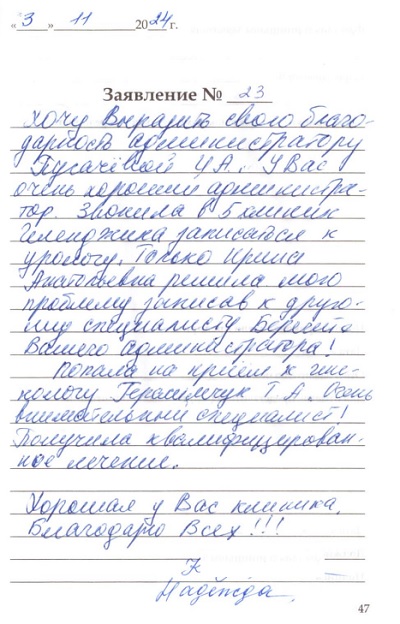 «3» 11 2024 г.
Заявление № 23
Хочу Выразить свою благо-
дарность администратору
Пугачёвой И.А. У Вас
очень хороший администра-
тор. Звонила в 5 клиник
Геленджика записаться к
урологу. Только Ирина
Анатольевна решила мою
проблему записав к друго-
му специалисту. Берегите
Вашего администратора!
Попала на приём к гине-
кологу Герасимчук Т.А. Очень
внимательный специалист!
Получила квалифицирован-
ное лечение.
Хорошая у Вас клиника.
Благодарю Всех!!!
Надежда.
47